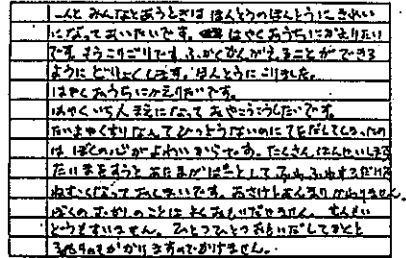 んと みんなとあうときは ほんとうのほんとうに きれい
になって あいたいです。 はやくおうちに かえりたい
です。もうこりごりです。ふかくかんがえることができる
ように どりょくします。ほんとうに こりました。
はやく おうちにかえりたいです。
はやく いち人まえになって おやこうこうしたいです。
たいまやくすりなんて ひつようないのに てをだしてしまったの
は ぼくの心がよわいからです。たくさん はんせいします
たいまをすうと あたまが ぼーとして ふわふわするだけで
ねむくなって おしまいです。おさけとあんまりかわりません。
ぼくの むかしのことは よくおもいだせません。
どうもすいません。ひとつひとつおもいだしてかくと